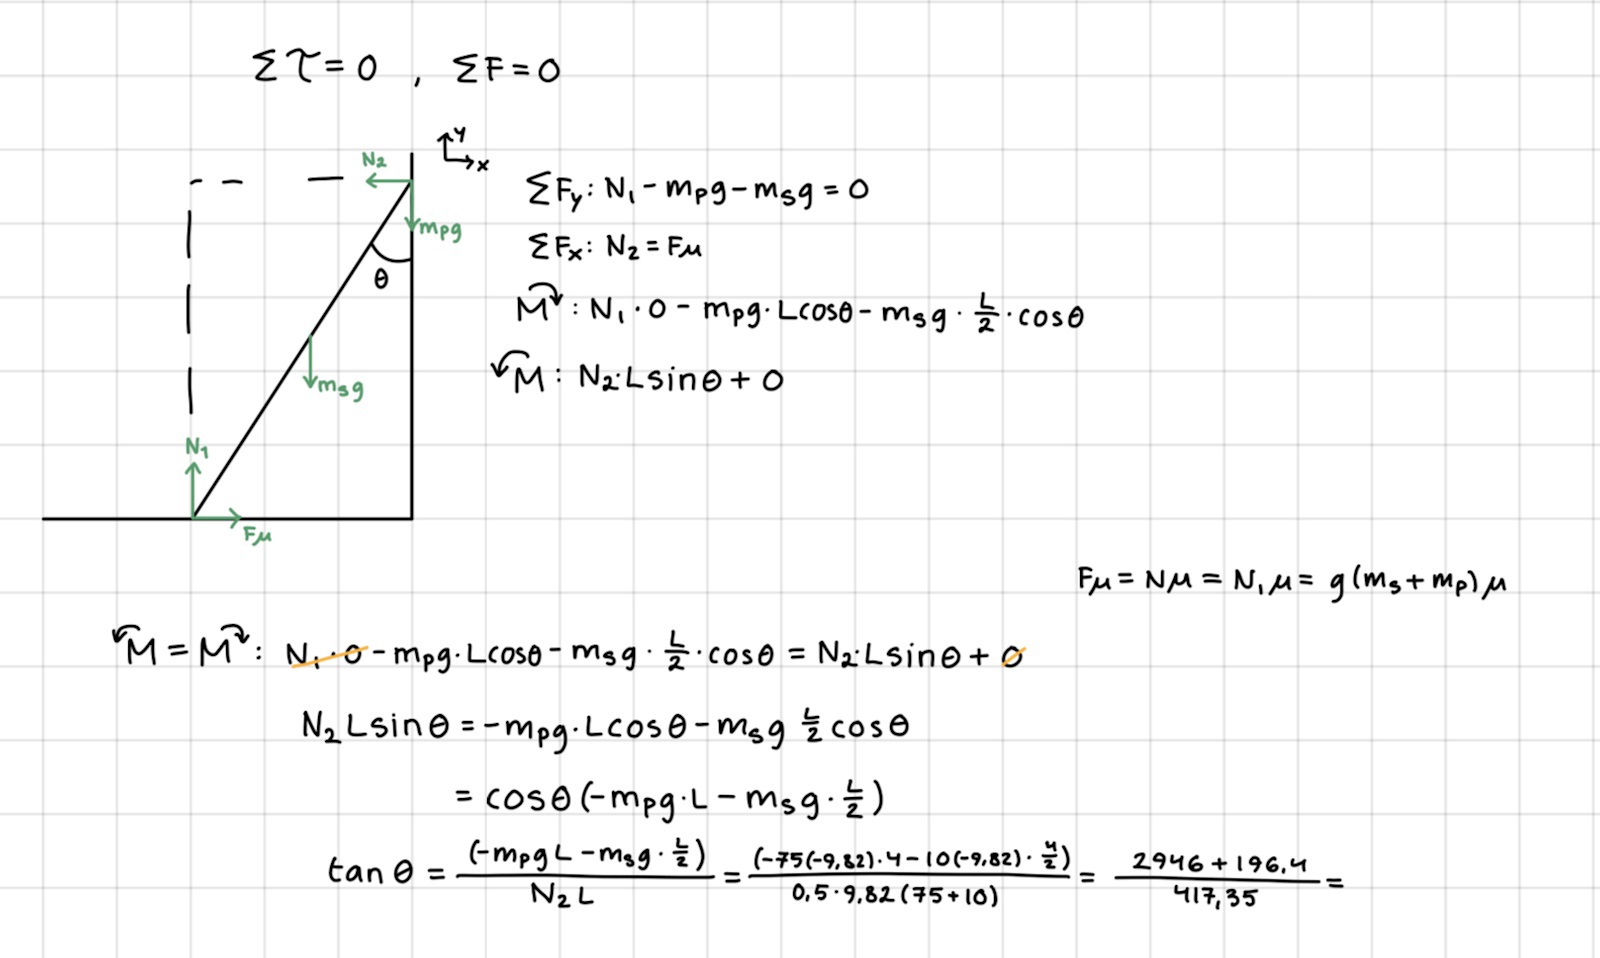 Στ = 0 , ΣF = 0
y
x
N₂
mpg
θ
msg
N₁
Fμ
ΣFy: N₁ - mpg - msg = 0
ΣFx: N₂ = Fμ
M↷: N₁ · 0 - mpg · Lcosθ - msg · L/2 · cosθ
↶M: N₂·Lsinθ + 0
Fμ = Nμ = N₁μ = g(ms + mp)μ
↶M = M↷: N₁ · 0 - mpg · Lcosθ - msg · L/2 · cosθ = N₂·Lsinθ + 0
N₂Lsinθ = -mpg · Lcosθ - msg L/2 cosθ
= cosθ(-mpg · L - msg · L/2)
tanθ = (-mpgL - msg · L/2) / N₂L = (-75(-9,82) · 4 - 10(-9,82) · 4/2) / 0,5 · 9,82(75+10) = 2946 + 196,4 / 417,35 =